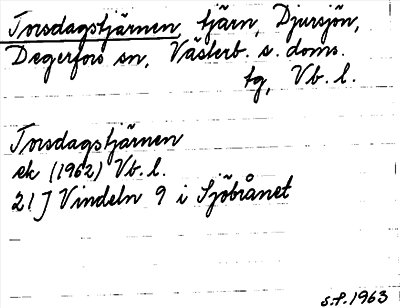 Torsdagstjärnen, tjärn, Djursjön,
Degerfors sn, Västerb. s. doms.
tg, Vb. l.
Torsdagstjärnen
ek (1962) Vb. l.
21 J Vindeln 9 i Sjöbrånet
S.P. 1963